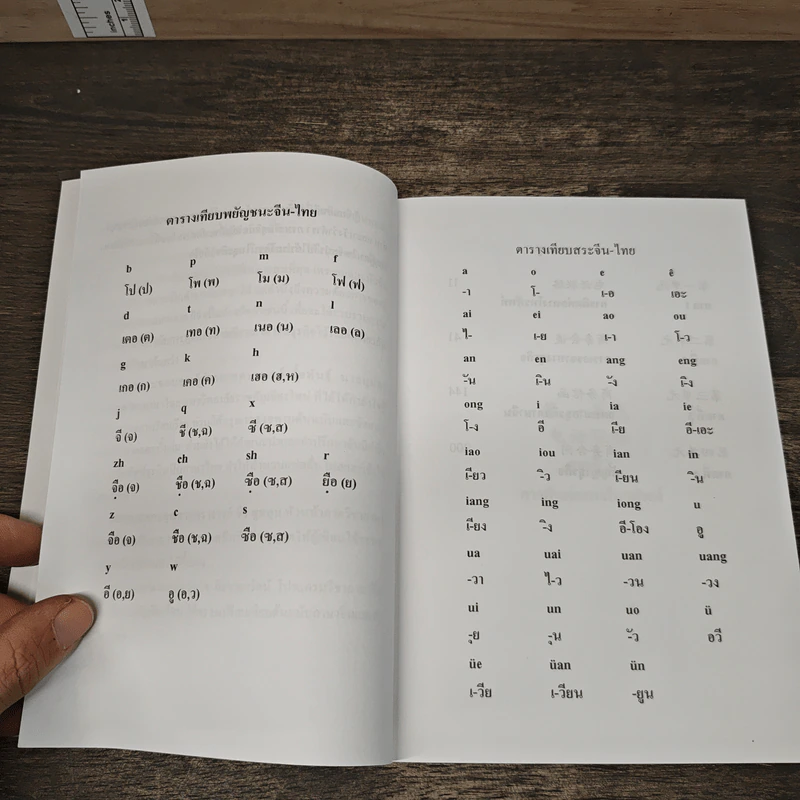 inches
ตารางเทียบพยัญชนะจีน-ไทย
b p m f
โป (ป) โพ (พ) โม (ม) โฟ (ฟ)
d t n l
เตอ (ต) เทอ (ท) เนอ (น) เลอ (ล)
g k h
เกอ (ก) เคอ (ค) เฮอ (ฮ,ห)
j q x
จี (จ) ชี (ช,ฉ) ซี (ซ,ส)
zh ch sh r
จฺือ (จ) ชฺือ (ช,ฉ) ซฺือ (ซ,ส) ยฺือ (ย)
z c s
จือ (จ) ชือ (ช,ฉ) ซือ (ซ,ส)
y w
อี (อ,ย) อู (อ,ว)
ตารางเทียบสระจีน-ไทย
a o e ê
-า โ- เ-อ เอะ
ai ei ao ou
ไ- เ-ย เ-า โ-ว
an en ang eng
-ัน เ-ิน -ัง เ-ิง
ong i ia ie
โ-ง อี เ-ีย อี-เอะ
iao iou ian in
เ-ียว -ิว เ-ียน -ิน
iang ing iong u
เ-ียง -ิง อี-โอง อู
ua uai uan uang
-วา ไ-ว -วน -วง
ui un uo ü
-ุย -ุน -ัว อวี
üe üan ün
เ-วีย เ-วียน -ยูน